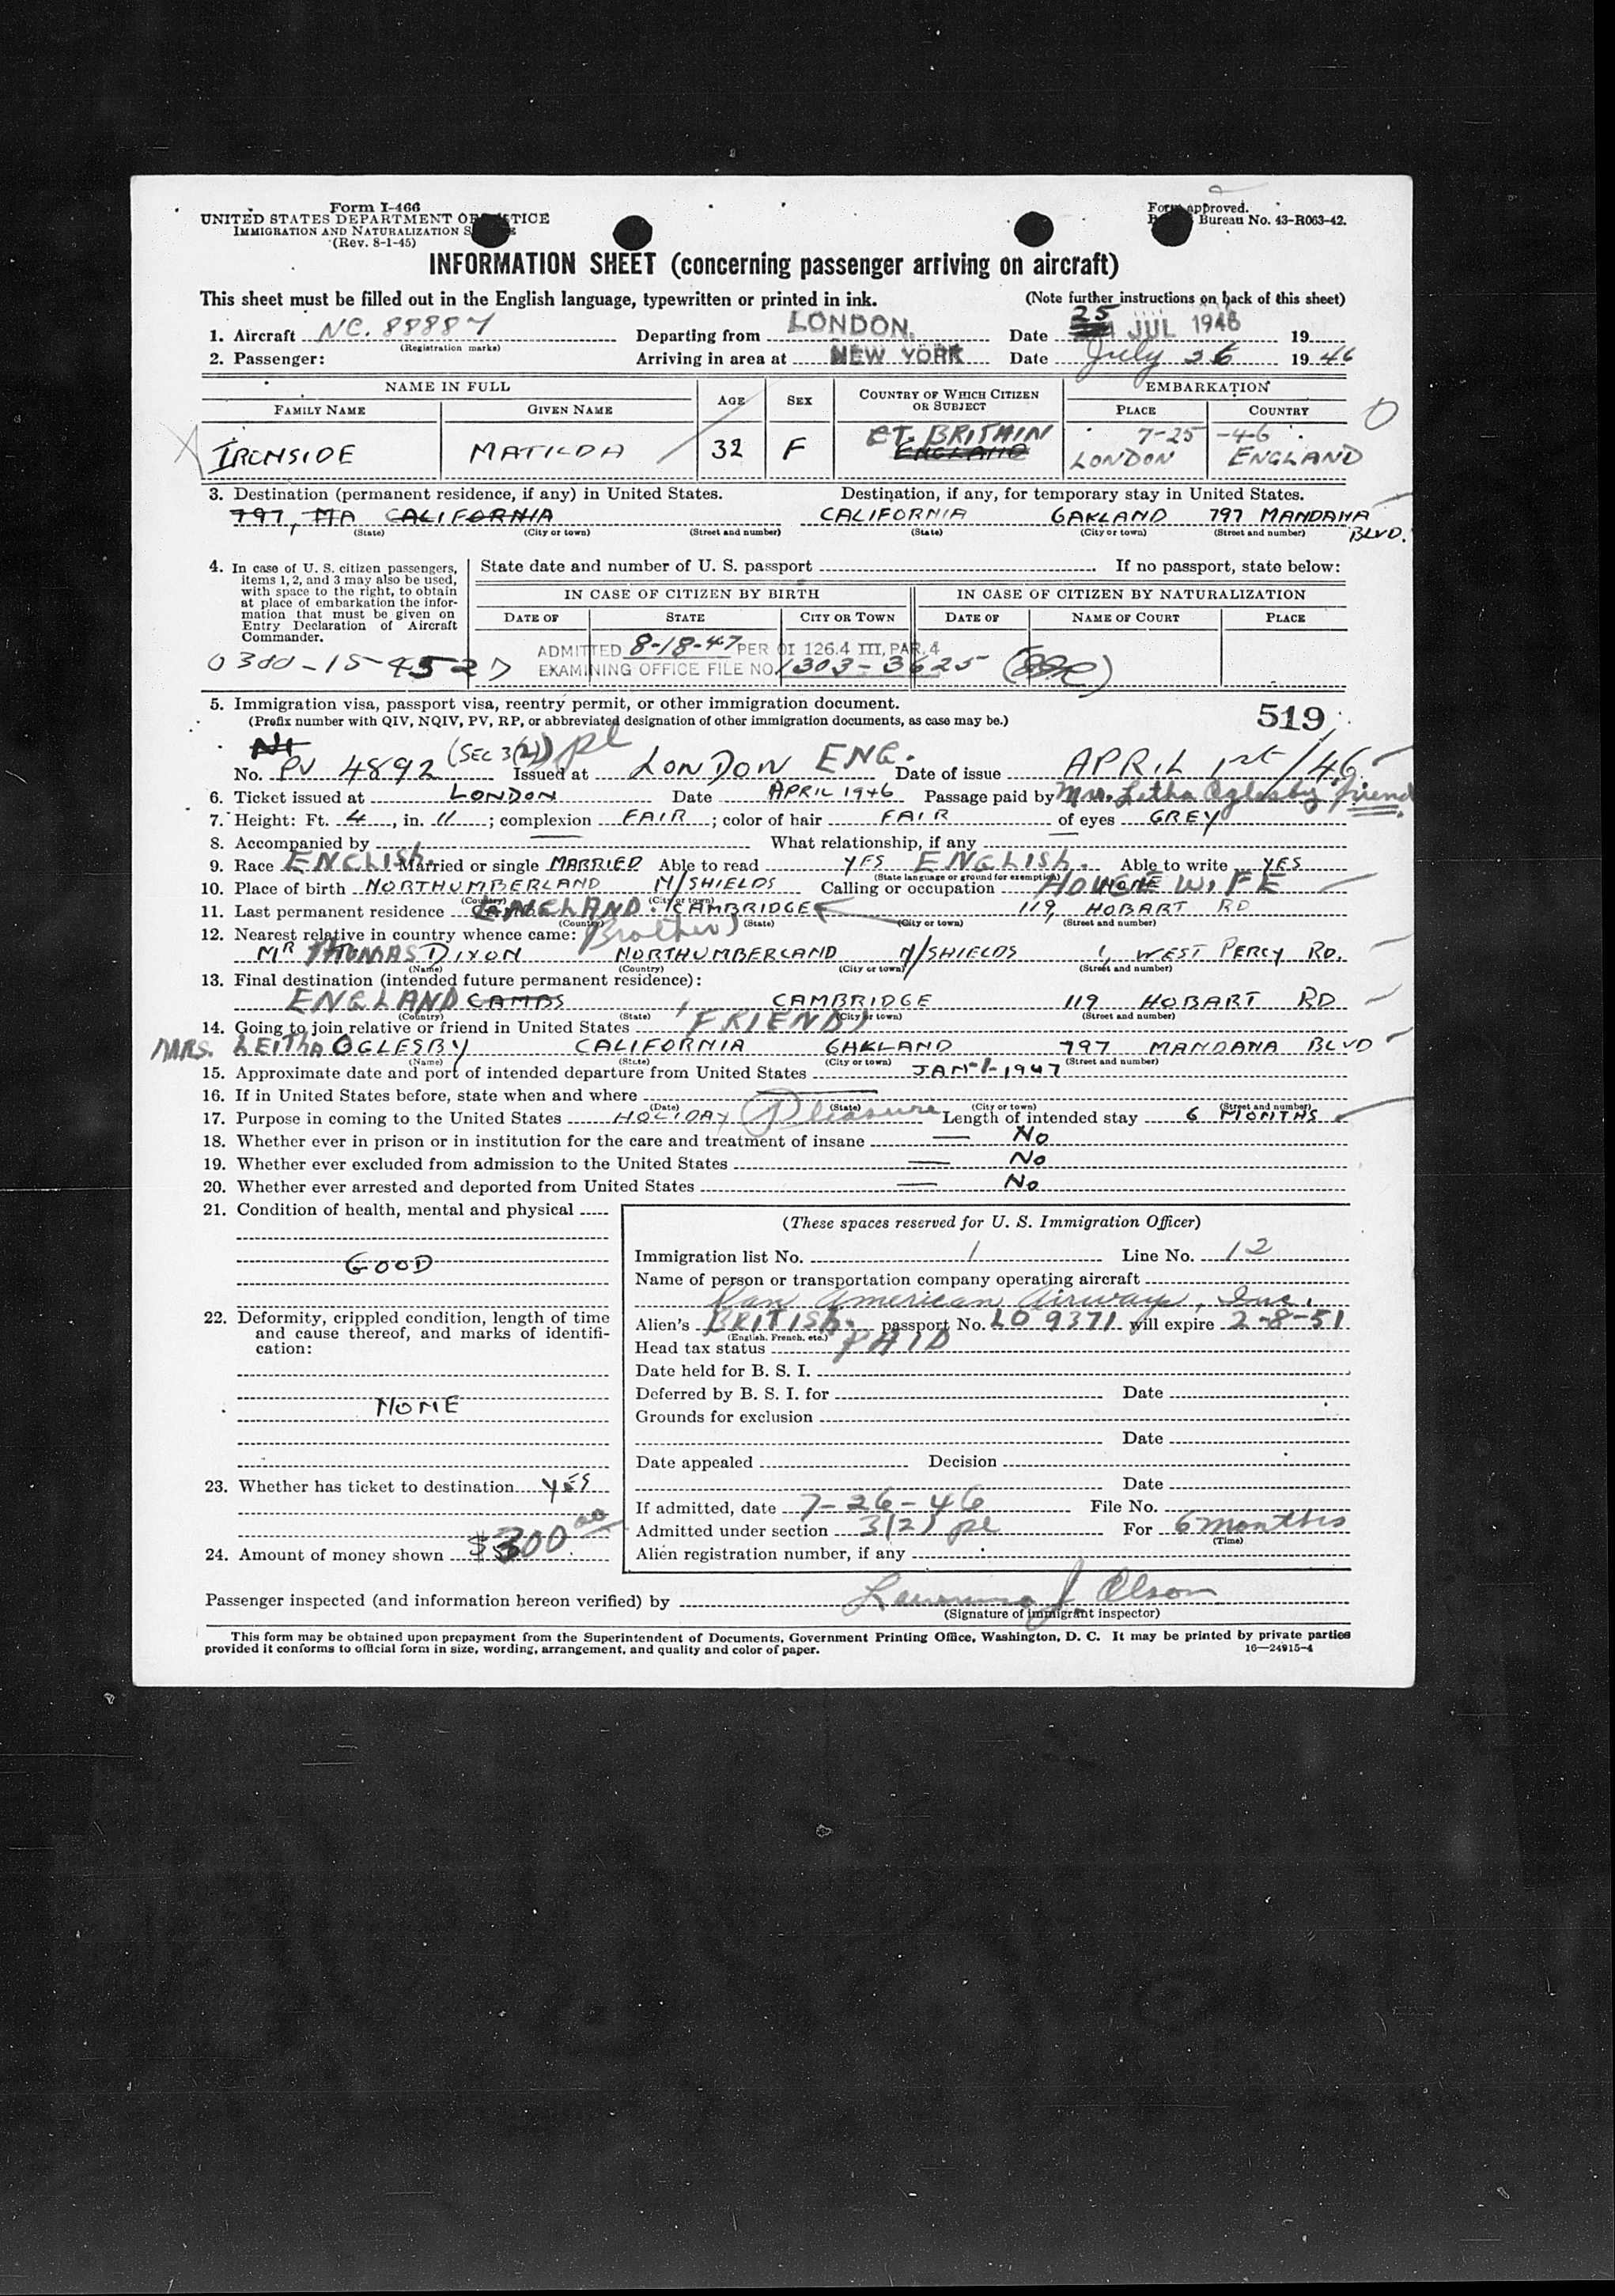 Form I-466
UNITED STATES DEPARTMENT OF JUSTICE
IMMIGRATION AND NATURALIZATION S
(Rev. 8-1-45)
Form approved.
Bureau No. 43-R063-42.
INFORMATION SHEET (concerning passenger arriving on aircraft)
This sheet must be filled out in the English language, typewritten or printed in ink. (Note further instructions on back of this sheet)
1. Aircraft NC. 88887 Departing from LONDON. Date 25 JUL 1946 19
(Registration marks)
2. Passenger: Arriving in area at NEW YORK Date July 26 1946
NAME IN FULL AGE SEX COUNTRY OF WHICH CITIZEN OR SUBJECT EMBARKATION
FAMILY NAME GIVEN NAME PLACE COUNTRY
GT. BRITAIN 7-25-46
IRONSIDE MATILDA 32 F ENGLAND LONDON ENGLAND
3. Destination (permanent residence, if any) in United States. Destination, if any, for temporary stay in United States.
797, MA CALIFORNIA CALIFORNIA OAKLAND 797 MANDANA BLVD.
(State) (City or town) (Street and number) (State) (City or town) (Street and number)
4. In case of U. S. citizen passengers, items 1, 2, and 3 may also be used, with space to the right, to obtain at place of embarkation the information that must be given on Entry Declaration of Aircraft Commander.
State date and number of U. S. passport If no passport, state below:
IN CASE OF CITIZEN BY BIRTH IN CASE OF CITIZEN BY NATURALIZATION
DATE OF STATE CITY OR TOWN DATE OF NAME OF COURT PLACE
ADMITTED 8-18-47 PER OI 126.4 III, PAR. 4
0300-15-4527 EXAMINING OFFICE FILE NO. 1303-3625
5. Immigration visa, passport visa, reentry permit, or other immigration document.
(Prefix number with QIV, NQIV, PV, RP, or abbreviated designation of other immigration documents, as case may be.) 519
No. PV 4892 (SEC 3(2)) pl Issued at LONDON ENG. Date of issue APRIL 1st/46
6. Ticket issued at LONDON Date APRIL 1946 Passage paid by Mrs. Letha Oglesby friend.
7. Height: Ft. 4, in. 11; complexion FAIR; color of hair FAIR of eyes GREY
8. Accompanied by What relationship, if any
9. Race ENGLISH. Married or single MARRIED Able to read YES ENGLISH. Able to write YES
(State language or ground for exemption)
10. Place of birth NORTHUMBERLAND N/SHIELDS Calling or occupation HOUSE WIFE
(Country) (City or town)
11. Last permanent residence ENGLAND. CAMBRIDGE 119, HOBART RD
(Country) (State) (City or town) (Street and number)
12. Nearest relative in country whence came: (Brother)
MR THOMAS DIXON NORTHUMBERLAND N/SHIELDS 1, WEST PERCY RD.
(Name) (Country) (City or town) (Street and number)
13. Final destination (intended future permanent residence):
ENGLAND CAMBS, CAMBRIDGE 119 HOBART RD
(Country) (State) (City or town) (Street and number)
14. Going to join relative or friend in United States (FRIEND)
MRS. LEITHA OGLESBY CALIFORNIA OAKLAND 797 MANDANA BLVD
(Name) (State) (City or town) (Street and number)
15. Approximate date and port of intended departure from United States JAN-1-1947
16. If in United States before, state when and where
(Date) (State) (City or town) (Street and number)
17. Purpose in coming to the United States HOLIDAY Pleasure Length of intended stay 6 MONTHS
18. Whether ever in prison or in institution for the care and treatment of insane NO
19. Whether ever excluded from admission to the United States NO
20. Whether ever arrested and deported from United States NO
21. Condition of health, mental and physical
GOOD
22. Deformity, crippled condition, length of time and cause thereof, and marks of identification:
NONE
23. Whether has ticket to destination YES
24. Amount of money shown $300.00
(These spaces reserved for U. S. Immigration Officer)
Immigration list No. 1 Line No. 12
Name of person or transportation company operating aircraft
Pan American Airway, Inc.
Alien's BRITISH. passport No. LO 9371 will expire 2-8-51
(English, French, etc.)
Head tax status PAID
Date held for B. S. I.
Deferred by B. S. I. for Date
Grounds for exclusion
Date
Date appealed Decision
Date
If admitted, date 7-26-46 File No.
Admitted under section 3(2) pl For 6 months
(Time)
Alien registration number, if any
Passenger inspected (and information hereon verified) by J Olson
(Signature of immigrant inspector)
This form may be obtained upon prepayment from the Superintendent of Documents, Government Printing Office, Washington, D. C. It may be printed by private parties
provided it conforms to official form in size, wording, arrangement, and quality and color of paper. 16—24915-4